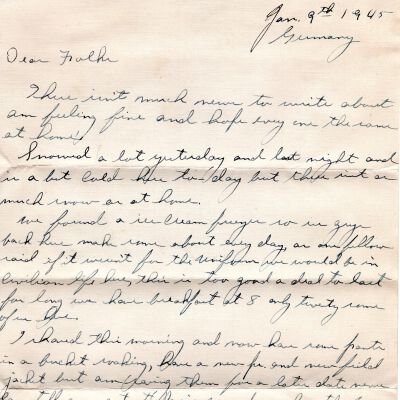 Jan. 9th 1945
Germany
Dear Folks
There isn't much news to write about
am feeling fine and hope every one the same
at home.
Snowed a lot yesterday and last night and
is a bit cold here to-day but there isn't as
much snow as at home.
We found a ice cream freezer so we guys
back here make some about every day, as one fellow
said if it wasn't for the uniform we would be in
civilian life here, this is too good a deal to last
for long we have breakfast at 8 only twenty some
of us here.
I shaved this morning and now have some pants
in a bucket soaking, have a new pr. and new field
jacket but am saving them for a later date never